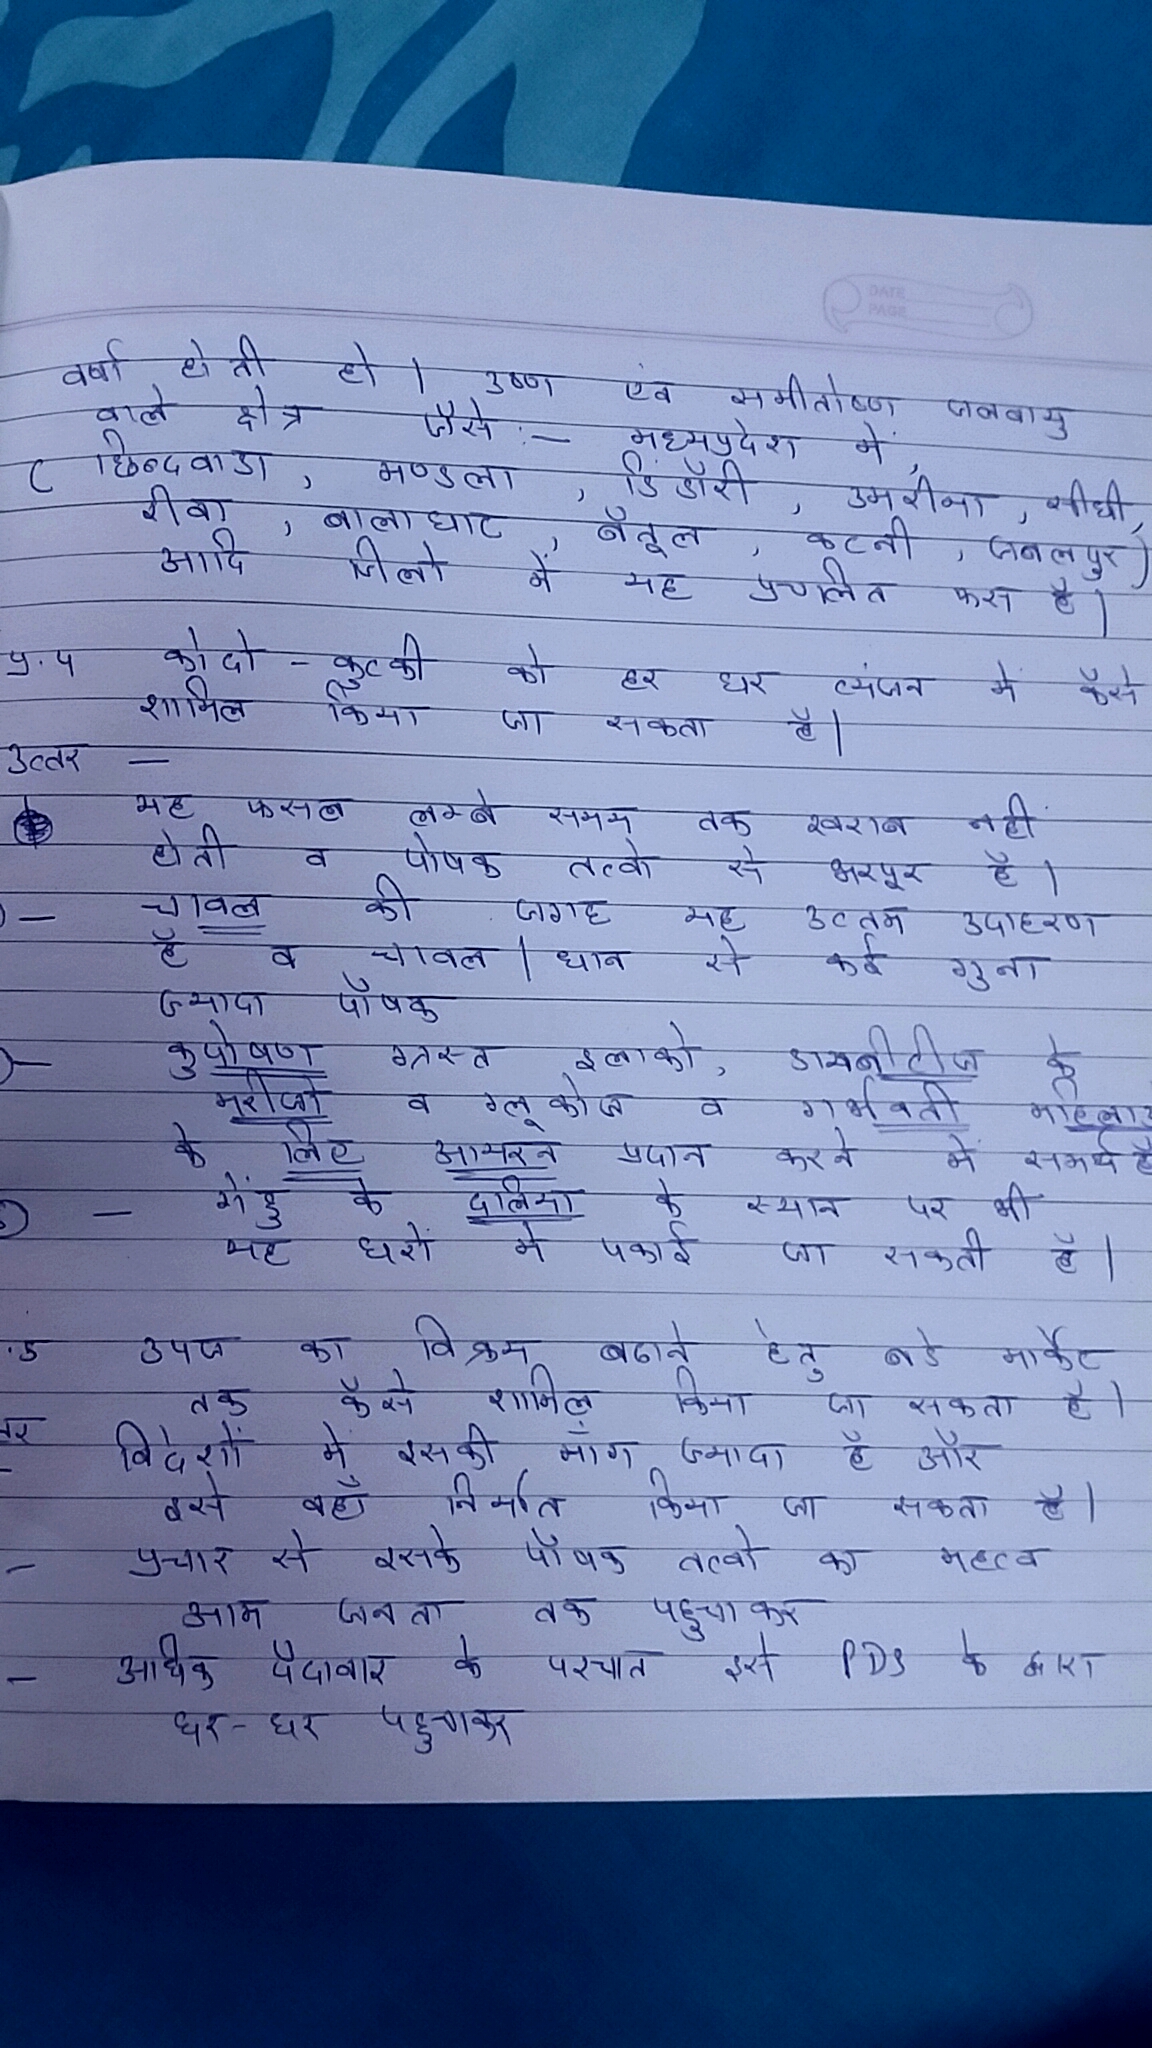 DATE
PAGE
वर्षा होती हो । उष्ण एंव समीतोष्ण जलवायु
वाले क्षेत्र जैसे :- मध्यप्रदेश में,
( छिन्दवाडा, मण्डला, डिंडौरी, उमरीया, सीधी,
रीवा, बालाघाट, बैतूल, कटनी, जबलपुर)
आदि जिलो में यह प्रचलित फस है।
प्र.4 कोदो - कुटकी को हर घर व्यंजन में कैसे
शामिल किया जा सकता है।
उत्तर -
यह फसल लम्बे समय तक खराब नही
होती व पोषक तत्वो से भरपूर है।
- चावल की जगह यह उत्तम उदाहरण
है व चावल / धान से कई गुना
ज्यादा पौषक
- कुपोषण ग्रस्त इलाको, डायबीटीज के
मरीजो व ग्लूकोज व गर्भवती महिला
के लिए आयरन प्रदान करने में समर्थ है
- गेंहु के दलिया के स्थान पर भी
यह घरों मे पकाई जा सकती है।
.5 उपज का विक्रय बढाने हेतु बडे मार्केट
तक कैसे शामिल किया जा सकता है।
तर विदेशों में इसकी माँग ज्यादा है और
- इसे वहाँ निर्यात किया जा सकता है।
- प्रचार से इसके पौषक तत्वो का महत्व
आम जनता तक पहुचाकर
- अधिक पैदावार के पश्चात इसे PDS के द्वारा
घर-घर पहुचाकर